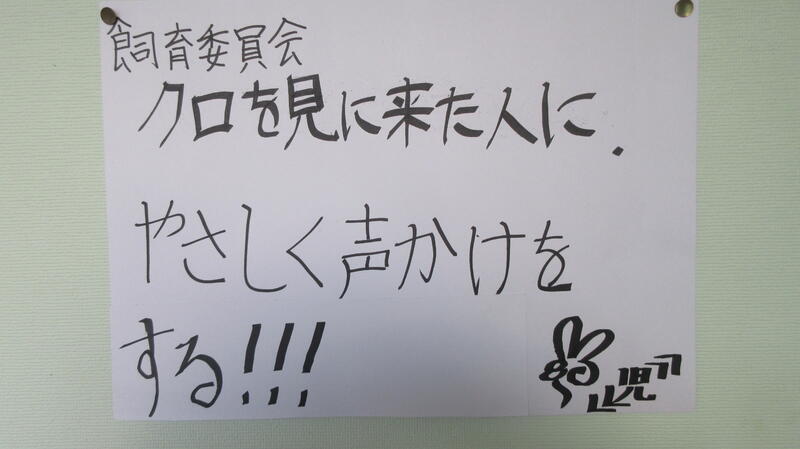 飼育委員会
クロを見に来た人に.
やさしく声かけを
する!!!
児